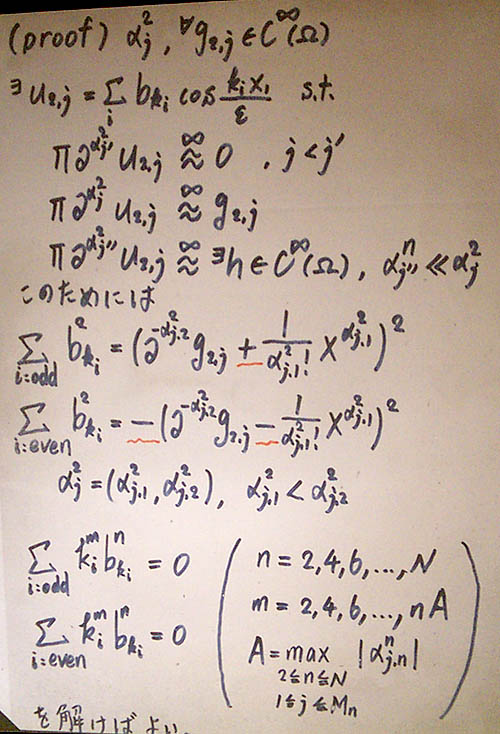 (proof) α_j^2, ∀g_{2,j} ∈ C^∞(Ω)
∃u_{2,j} = Σ_i b_{k_i} cos (k_i x_1)/ε s.t.
Π∂^{α_{j'}^2} u_{2,j} ≈^∞ 0 , j < j'
Π∂^{α_j^2} u_{2,j} ≈^∞ g_{2,j}
Π∂^{α_{j''}^n} u_{2,j} ≈^∞ ∃h ∈ C^∞(Ω), α_{j''}^n ≪ α_j^2
このためには
Σ_{i=odd} b_{k_i}^2 = (∂^{-α_{j,2}^2} g_{2,j} + 1/(α_{j,1}^2!) x^{α_{j,1}^2})^2
Σ_{i=even} b_{k_i}^2 = -(∂^{-α_{j,2}^2} g_{2,j} - 1/(α_{j,1}^2!) x^{α_{j,1}^2})^2
α_j^2 = (α_{j,1}^2, α_{j,2}^2), α_{j,1}^2 < α_{j,2}^2
Σ_{i=odd} k_i^m b_{k_i}^n = 0
Σ_{i=even} k_i^m b_{k_i}^n = 0
(n = 2, 4, 6, ..., N
m = 2, 4, 6, ..., nA
A = max |α_{j,n}^n|
2≦n≦N
1≦j≦M_n)
を解けばよい.